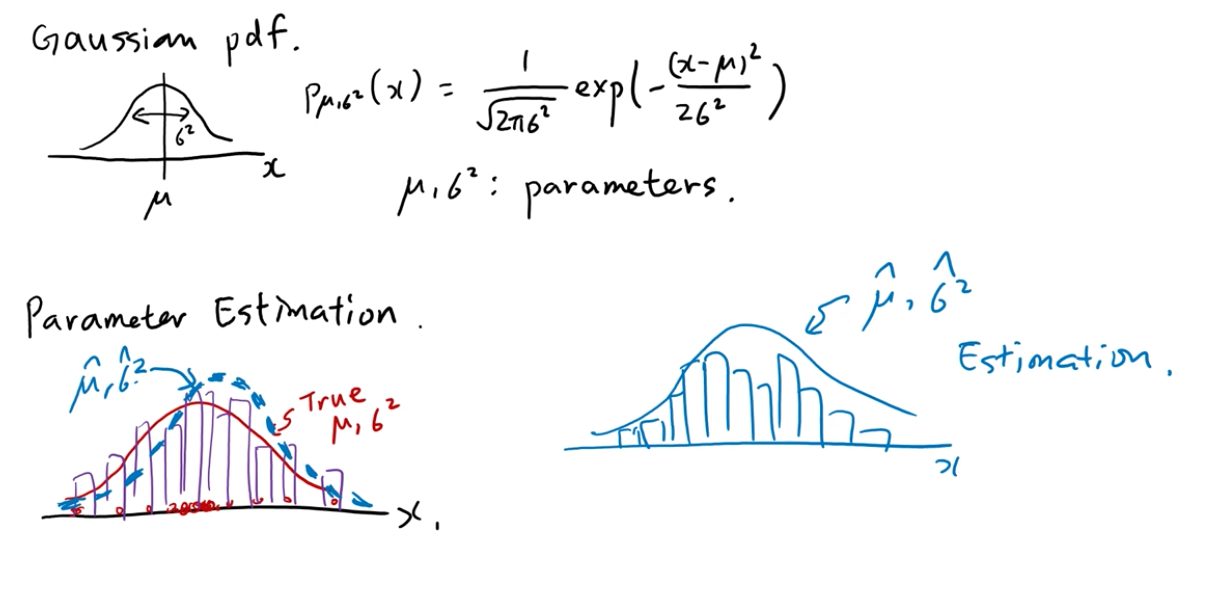 Gaussian pdf.
Pμ,σ²(x) = 1/√(2πσ²) exp(-(x-μ)²/2σ²)
σ²
x
μ
μ, σ² : parameters.
Parameter Estimation.
μ̂, σ̂²
True
μ, σ²
x.
μ̂, σ̂²
Estimation.
x